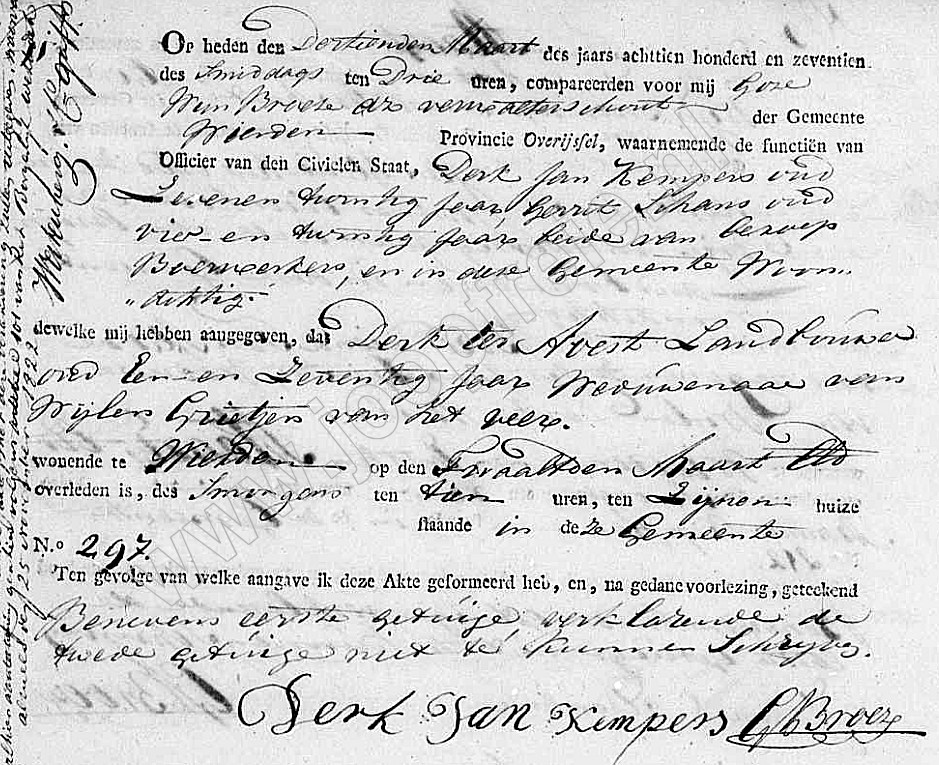 Op heden den Dertienden Maart des jaars achttien honderd en zeventien
des Smiddags ten Drie uren, compareerden voor mij Goze
Wijn Broeze der gemeente
Wierden Provincie Overijssel, waarnemende de functiën van
Officier van den Civielen Staat, Derk Jan Kempers oud
Zevenen twintig Jaar Gerrit Schans oud
vier en twintig Jaar beide van beroep
Boerwerkers, en in deze Gemeente Woon
"achtig.
dewelke mij hebben aangegeven, dat Derk ter Avest Landbouwer
oud Een en Zeventig Jaar Weduwenaar van
Wijlen Grietjen van het veer.
wonende te Wierden op den Twaalfden Maart
overleden is, des Smorgens ten tien uren, ten Zijnen huize
staande in deze Gemeente
N.o 297.
Ten gevolge van welke aangave ik deze Akte geformeerd heb, en, na gedane voorlezing, geteekend
Benevens eerste getuige verklarende de
twede getuige niet te kunnen Schryven.
Derk Jan Kempers G W Broeze
25 november 1822
griffier
www.jooptree.nl